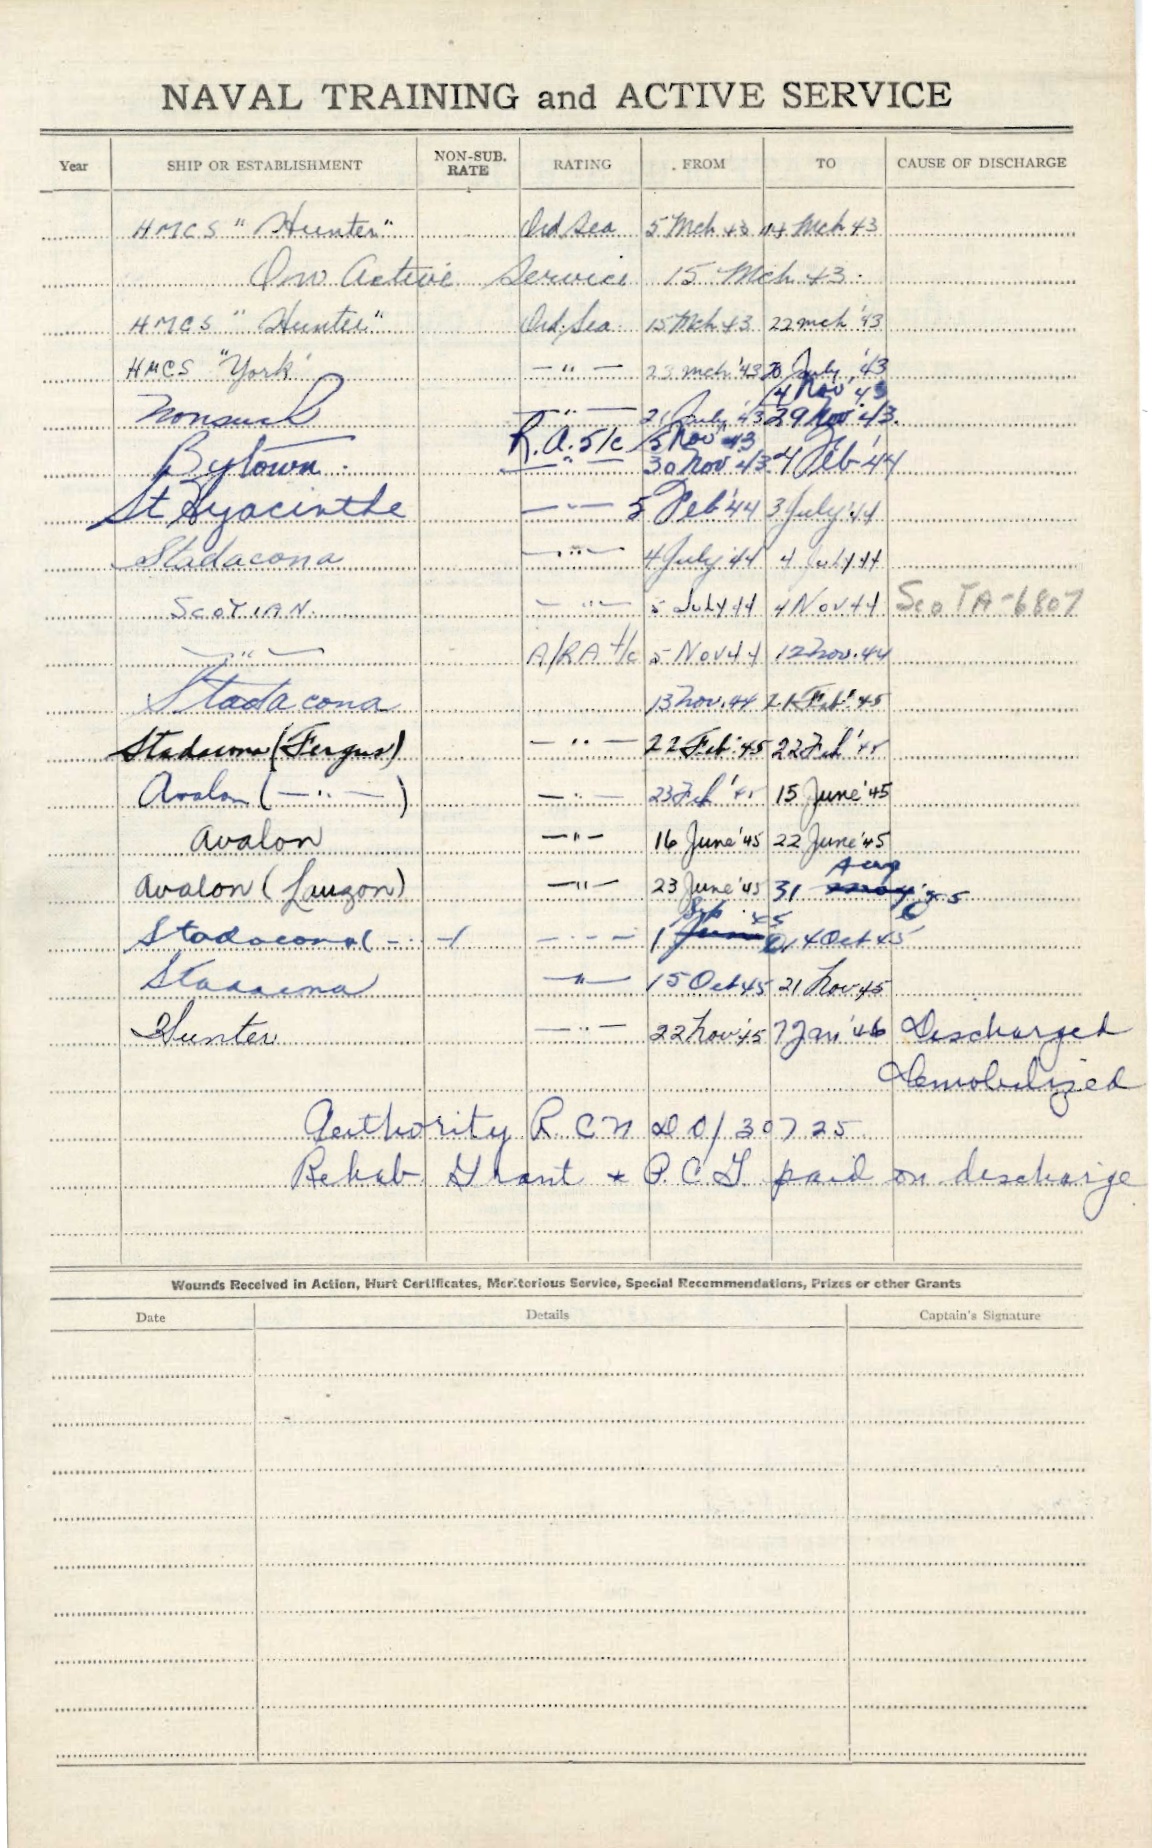 NAVAL TRAINING and ACTIVE SERVICE
Year SHIP OR ESTABLISHMENT NON-SUB. RATE RATING FROM TO CAUSE OF DISCHARGE
HMCS "Hunter" Ord Sea 5 Mch 43 14 Mch 43
On Active Service 15 Mch 43.
HMCS "Hunter" Ord. Sea 15 Mch 43 22 mch '43
HMCS "York" —"— 23 mch '43 20 July '43
4 Nov '43
Nonsuch —"— 21 July '43 29 Nov '43.
R.A. 5/c 5 Nov '43
Bytown. —"— 30 Nov '43 4 Feb '44
St Hyacinthe —"— 5 Feb '44 3 July '44
Stadacona —"— 4 July '44 4 July 44
SCOTIAN. —"— 5 July 44 4 Nov 44 ScoTA-6807
—"— A/RA 4/c 5 Nov 44 12 Nov. 44
Stadacona 13 Nov. 44 21 Feb' 45
Stadacona (Fergus) —"— 22 Feb '45 22 Feb '45
Avalon (—"—) —"— 23 Feb '45 15 June '45
Avalon —"— 16 June '45 22 June '45
Aug
Avalon (Lauzon) —"— 23 June '45 31 may 45
Sep 45
Stadacona (—"—) —"— 1 June 14 Oct 45
Stadacona —"— 15 Oct 45 21 Nov 45
Hunter —"— 22 Nov '45 7 Jan '46 Discharged
Demobilized
Authority R.C.N DO/30725
Rehab. Grant + P.C.G. paid on discharge
Wounds Received in Action, Hurt Certificates, Meritorious Service, Special Recommendations, Prizes or other Grants
Date Details Captain's Signature